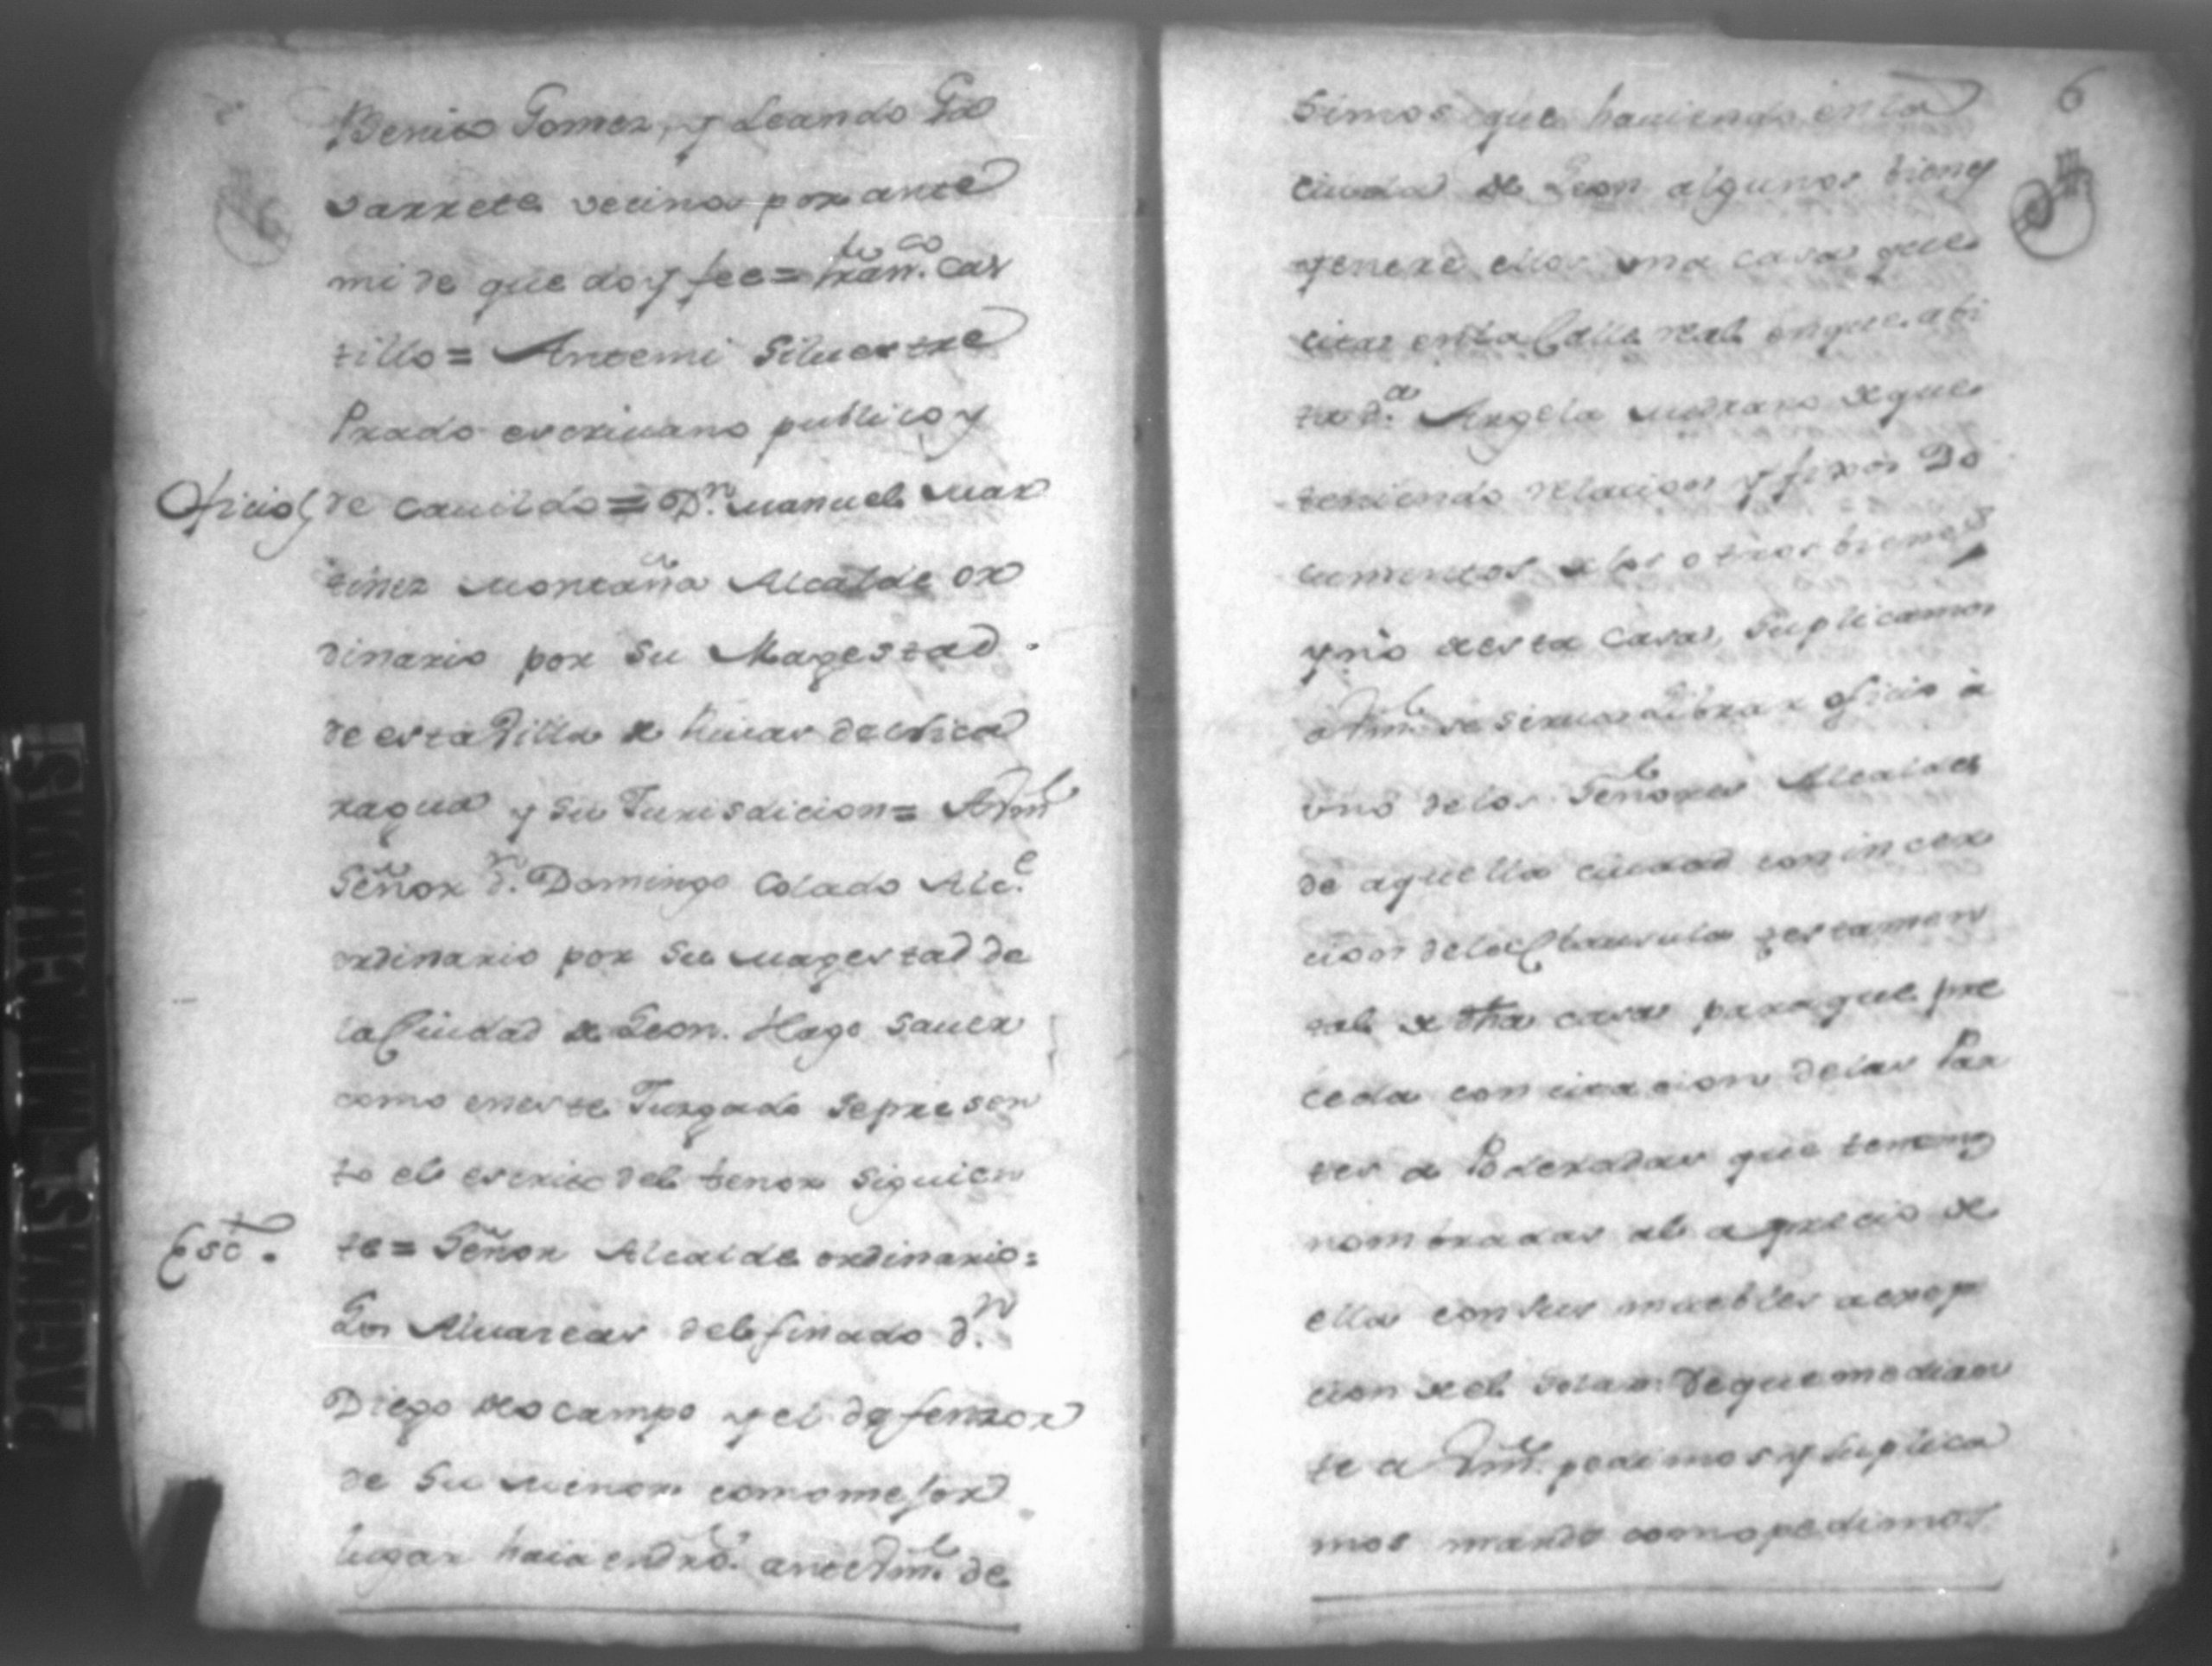 Benito Gomez, y Leando Go
varrete vecinos por ante
mi de que doy fee = Fran.co Cas
tillo = Antemi Siluestre
Prado escriuano publico y
Oficio de cauildo = D.n Manuel Mar
tinez Montaña Alcalde or
dinario por su Magestad
de esta Villa de Riuas de Nica
ragua y su Jurisdicion = A Vm
Señor d.n Domingo Colado Alc.e
ordinario por su Magestad de
la Ciudad de Leon. Hago sauer
como en este Juzgado se presen
to el escrito del tenor siguien
Esc.to te = Señor Alcalde ordinario =
Los Aluaceas del finado d.n
Diego de Ocampo y el defensor
de su menor como mejor
lugar haia en dro. ante Vm. de
6
simos que hauiendo en la
ciuda de Leon algunos bienes
y entre ellos una casa que
citas en la Calle real en que abi
ta d.a Angela Medrano de que
teniendo relacion y fixos Do
cumentos de los otros bienes
y no de esta casa, suplicamos
a Vm. se sirua librar oficio à
uno de los Señores Alcaldes
de aquella ciudad con incer
cion de la Clausula testamen
tal de dha casa para que pre
ceda con citacion de las Par
tes a Poderadas que tenemos
nombradas al aprecio de
ella con sus muebles a excep
cion de el solar. De que median
te a Vm. pedimos y suplica
mos mande como pedimos